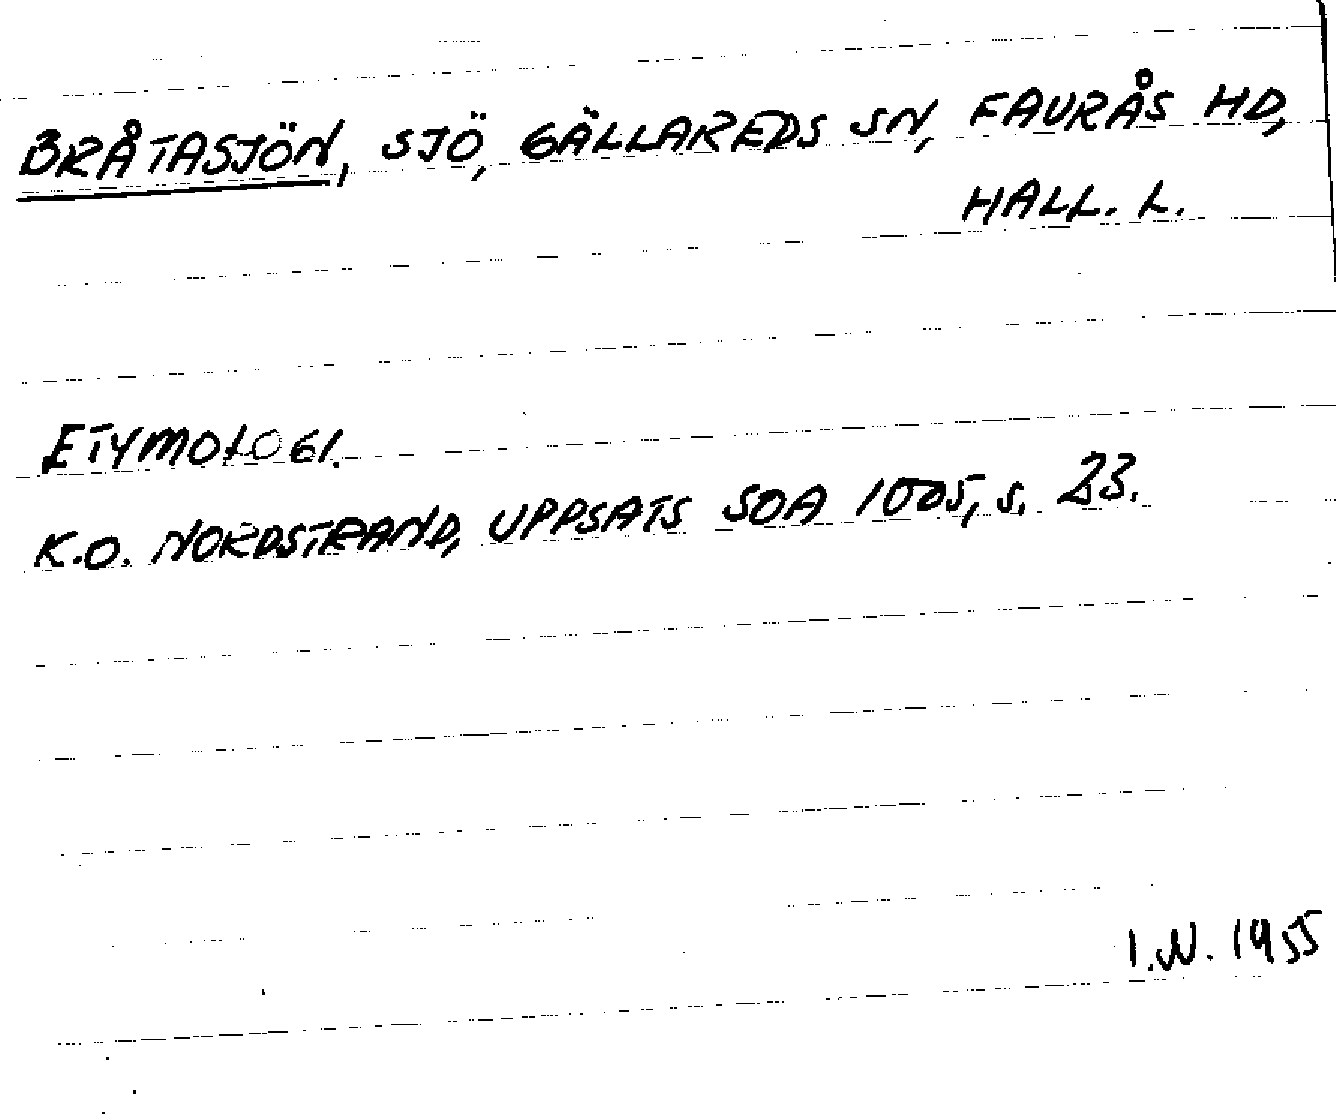 BRÅTASJÖN, SJÖ, GÄLLAREDS SN, FAURÅS HD,
HALL. L.
ETYMOLOGI.
K.O. NORDSTRAND, UPPSATS SOA 1005, S. 23.
I.N. 1955